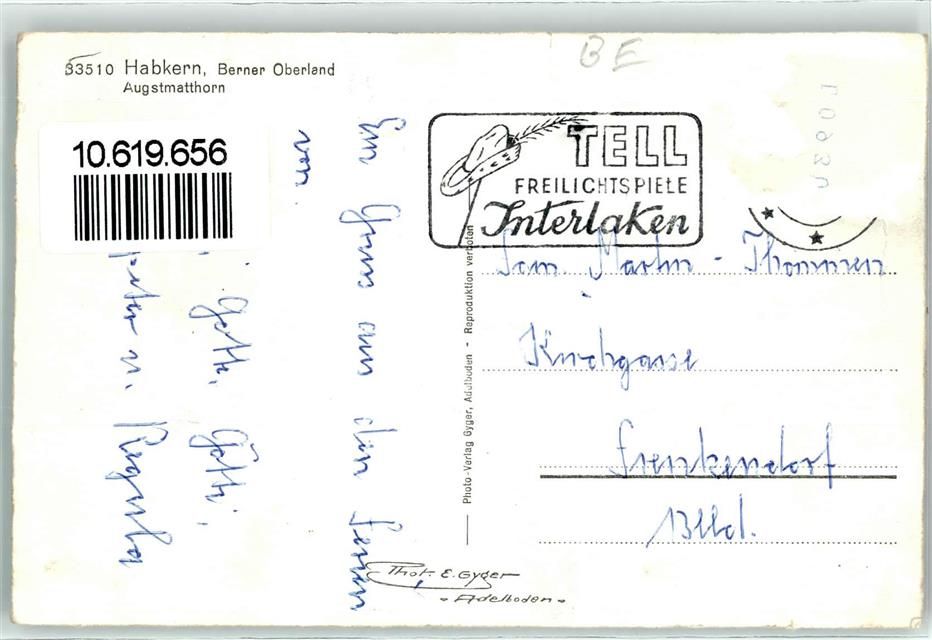 33510 Habkern, Berner Oberland
Augstmatthorn
BE
10.619.656
TELL
FREILICHTSPIELE
Interlaken
Ein Gruss aus den Ferien
von
Gotti, Götti,
Peter u. Regula
Fam. Martin - Thommen
Kirchgasse
Frenkendorf
Blld.
Photo-Verlag Gyger, Adelboden - Reproduktion verboten
Phot. E. Gyger
- Adelboden -